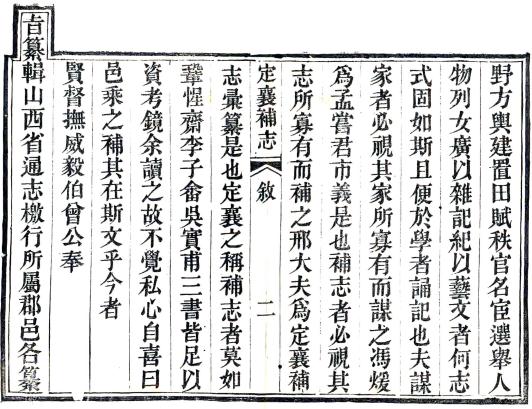 野方輿建置田賦秩官名宦選舉人
物列女廣以雜記紀以藝文者何志
式固如斯且便於學者誦記也夫謀
家者必視其家所寡有而謀之馮煖
為孟嘗君市義是也補志者必視其
志所寡有而補之邢大夫為定襄補
定襄補志 敘 二
志彙纂是也定襄之稱補志者莫如
鞏惺齋李子畬吳實甫三書皆足以
資考鏡余讀之故不覺私心自喜曰
邑乘之補其在斯文乎今者
賢督撫威毅伯曾公奉
旨纂輯山西省通志檄行所屬郡邑各纂